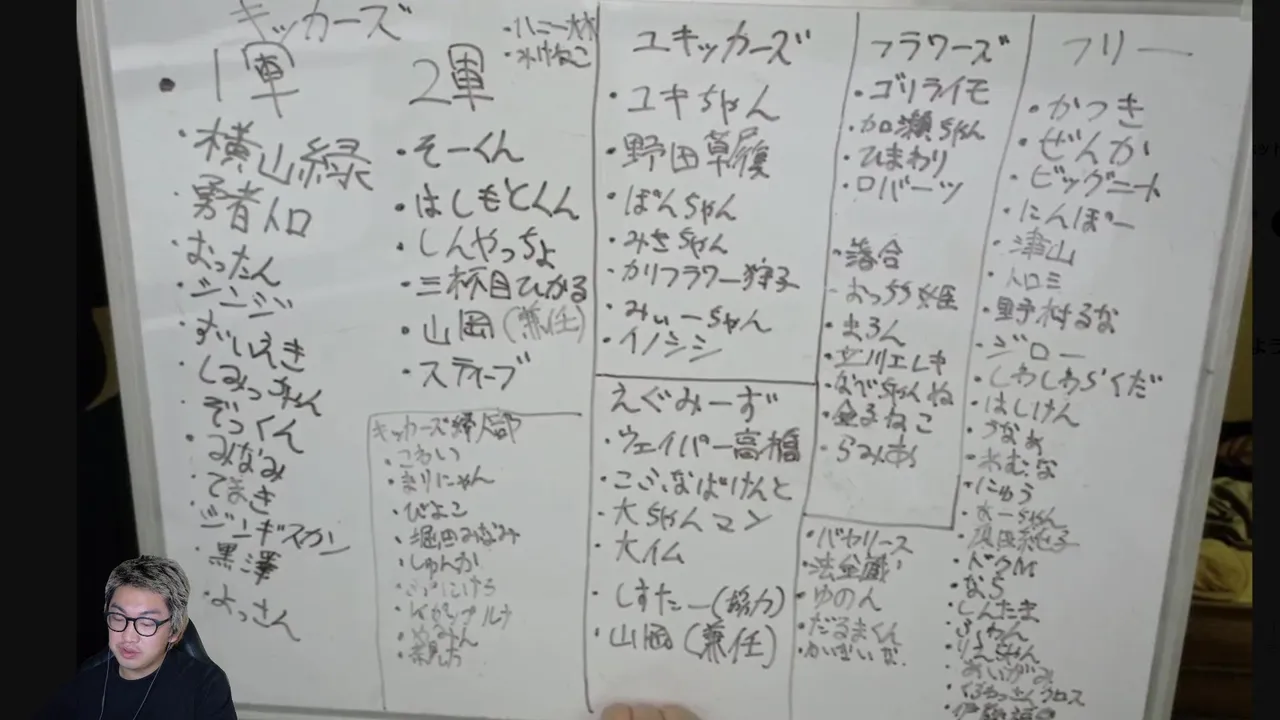 キッカーズ
・ハニー林
・水けねこ
・1軍
・横山緑
・勇者トロ
・おったん
・ジンジン
・ずいえき
・しみっちゃん
・ぞっくん
・みなみ
・てまき
・ジンギスカン
・黒澤
・よっさん
2軍
・そーくん
・はしもとくん
・しんやっちょ
・三杯目ひかる
・山岡(兼任)
・スティーブ
キッカーズ婦人部
・こわい
・まりにゃん
・ぴよこ
・堀田みなみ
・しゅんか
ユキッカーズ
・ユキちゃん
・野田草履
・ぽんちゃん
・みさちゃん
・カリフラワー狩子
・みぃーちゃん
・イノシシ
えぐみーず
・ウェイパー高橋
・こふなばけんと
・大ちゃんマン
・大イム
・しすたー(協力)
・山岡(兼任)
フラワーズ
・ゴリライモ
・加瀬ちゃん
・ひまわり
・ロバーツ
・落合
・おっちち姫
・まろん
・立川エレキ
・なでちゃんね
・金子ねこ
・らみあ
・バヤリース
・法金蔵
・ゆのん
・だるまくん
フリー
・かつき
・ぜんか
・ビッグニート
・にんぽー
・津山
・トロミ
・野村るな
・ジロー
・しわしわらくだ
・はしけん
・うなぁ
・れむな
・にゅう
・ドクM
・なら
・しんたま
・ふわん
・りえちゃん
・あいがみ